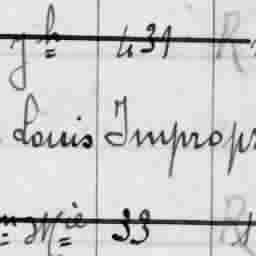 gh 431 R
Louis Impropr
33 R